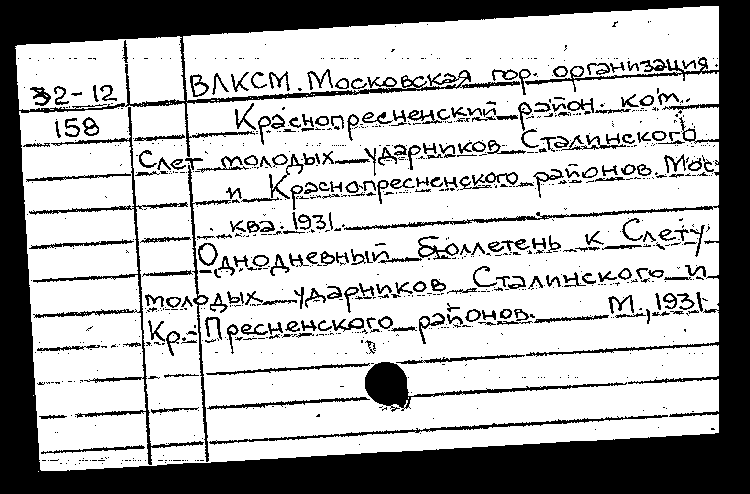 32-12
158
ВЛКСМ. Московская гор. организация.
Краснопресненский район. ком.
Слет молодых ударников Сталинского
и Краснопресненского районов. Мос
ква. 1931.
Однодневный бюллетень к Слету
молодых ударников Сталинского и
Кр.-Пресненского районов. М., 1931.